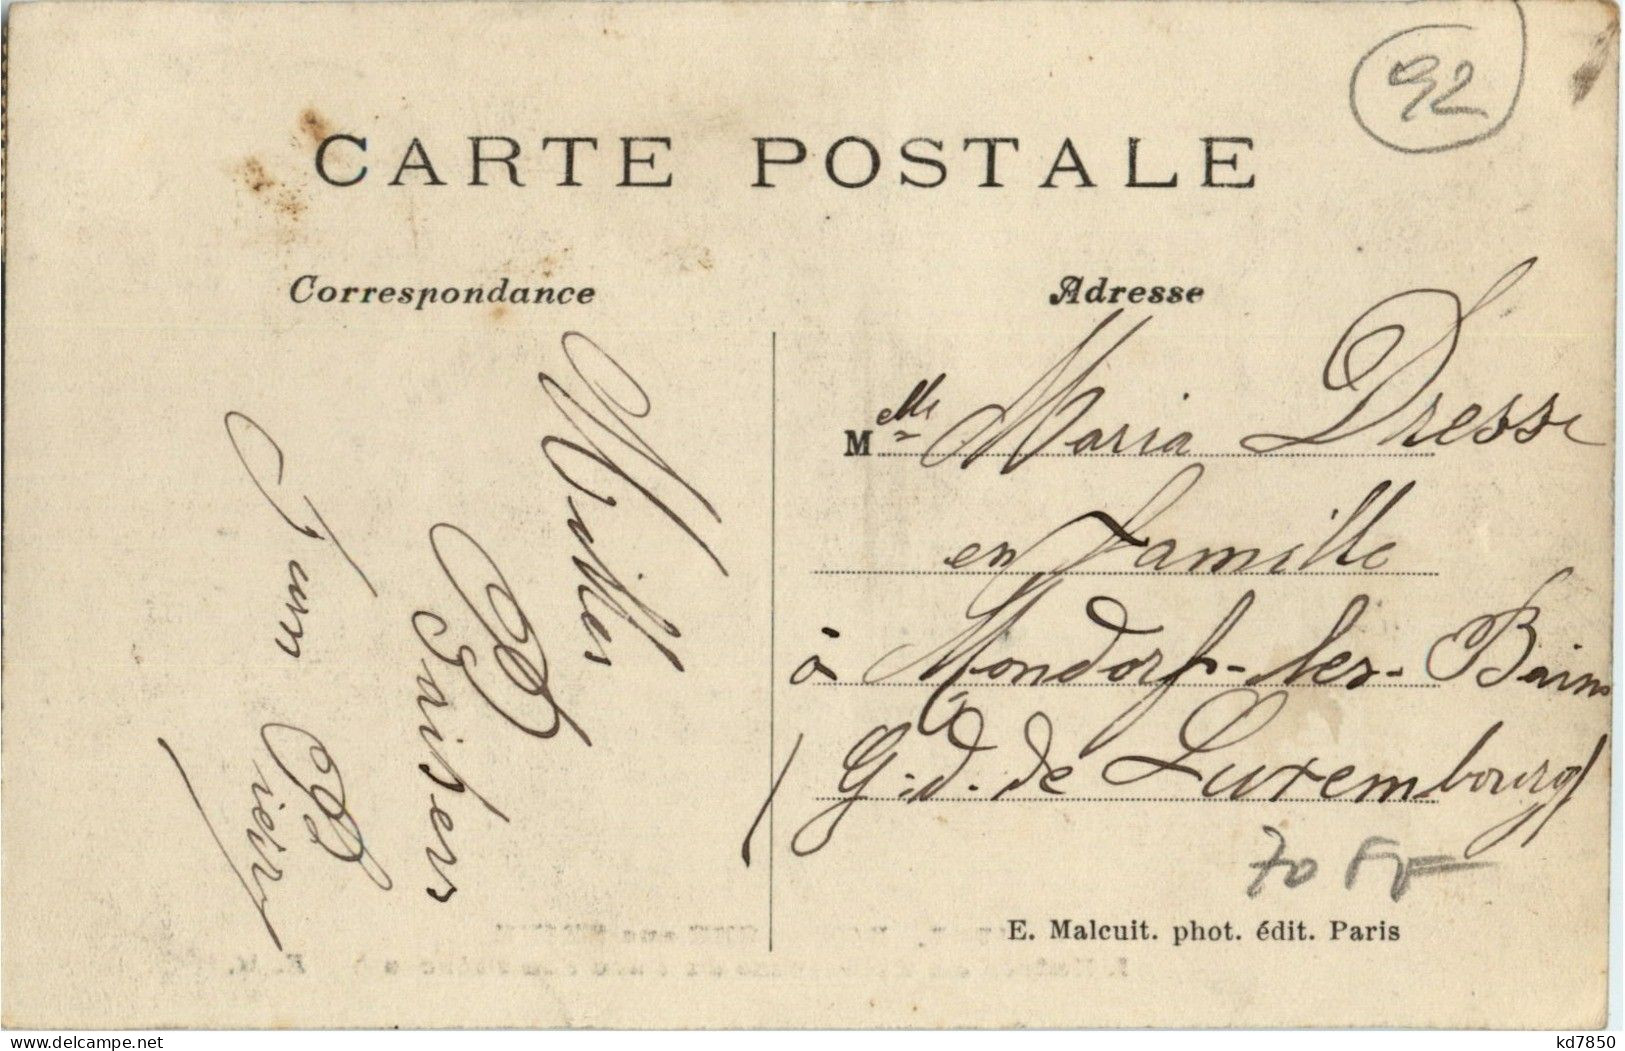 92
CARTE POSTALE
Correspondance
Adresse
Milles
Baisers
Jean Pierre
Melle Maria Dresse
en famille
à Mondorf-les-Bains
(G.d. de Luxembourg)
70 FF
E. Malcuit. phot. édit. Paris
kd7850